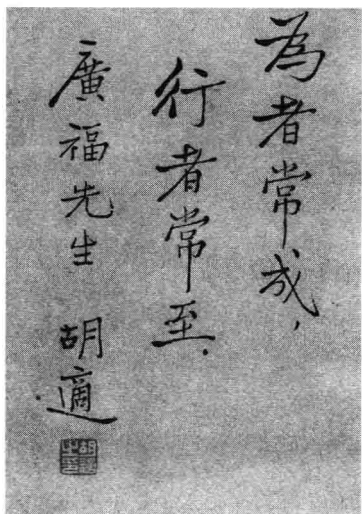 為者常成，
行者常至．
廣福先生 胡適